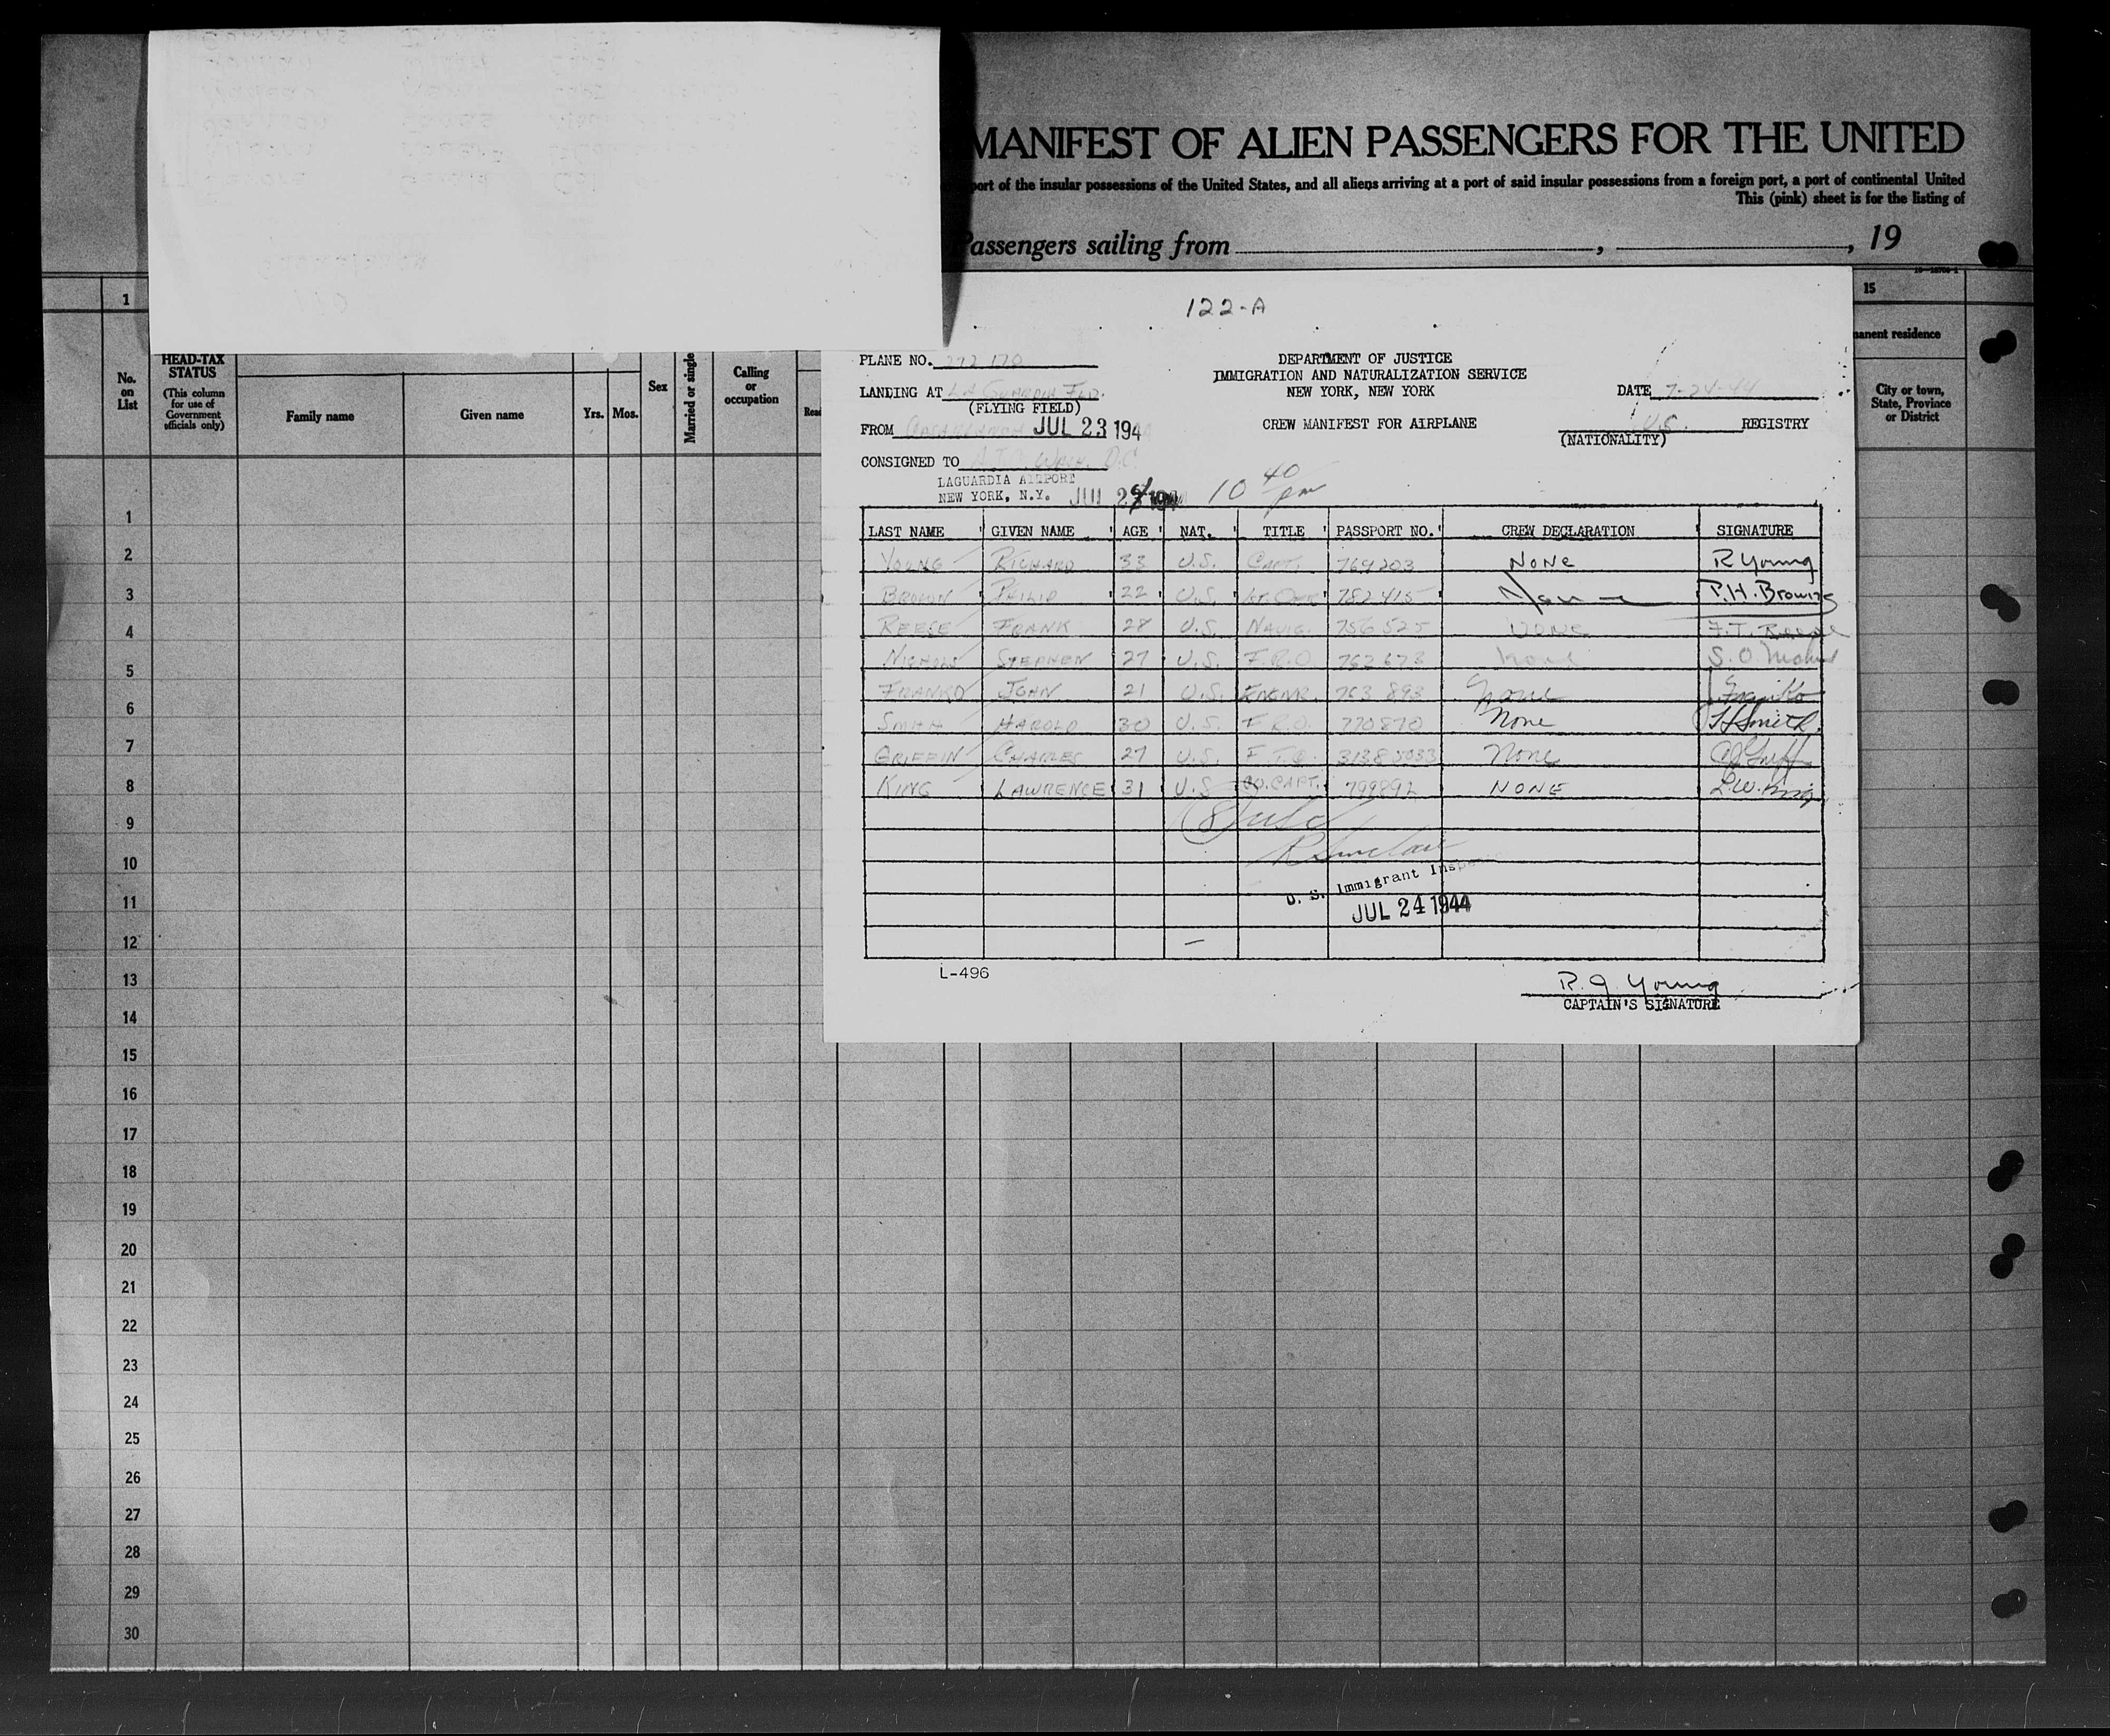 MANIFEST OF ALIEN PASSENGERS FOR THE UNITED
port of the insular possessions of the United States, and all aliens arriving at a port of said insular possessions from a foreign port, a port of continental United
This (pink) sheet is for the listing of
Passengers sailing from , , 19
1 15
HEAD-TAX STATUS
(This column for use of Government officials only)
No. on List
Family name Given name Yrs. Mos. Sex Married or single Calling or occupation Read
manent residence
City or town, State, Province or District
122-A
PLANE NO. 272 170
DEPARTMENT OF JUSTICE
IMMIGRATION AND NATURALIZATION SERVICE
NEW YORK, NEW YORK
LANDING AT LA GUARDIA FLD.
(FLYING FIELD)
DATE 7-24-44
FROM CASABLANCA JUL 23 194
CREW MANIFEST FOR AIRPLANE
U.S. REGISTRY
(NATIONALITY)
CONSIGNED TO WASH. D.C.
LAGUARDIA AIRPORT
NEW YORK, N.Y. JUL 24 1944 10 40 pm
LAST NAME GIVEN NAME AGE NAT. TITLE PASSPORT NO. CREW DECLARATION SIGNATURE
YOUNG RICHARD 33 U.S. CAPT. 769203 NONE R Young
BROWN PHILIP 22 U.S. 782415 None P.H. Brown
REESE FRANK 28 U.S. NAVIG. 756525 NONE F.T. Reese
NICHOLS STEPHEN 27 U.S. F.R.O. 762673 None S. O Nichols
FRANKO JOHN 21 U.S. ENGNR. 763 893 None J Franko
SMITH HAROLD 30 U.S. F.R.O. 770870 None H Smith
GRIFFIN CHARLES 27 U.S. 31385033 None
KING LAWRENCE 31 U.S. CO. CAPT. 799892 NONE L.W. King
R Sinclair
U. S. Immigrant Inspe
JUL 24 1944
L-496
R. J. Young
CAPTAIN'S SIGNATURE
1
2
3
4
5
6
7
8
9
10
11
12
13
14
15
16
17
18
19
20
21
22
23
24
25
26
27
28
29
30